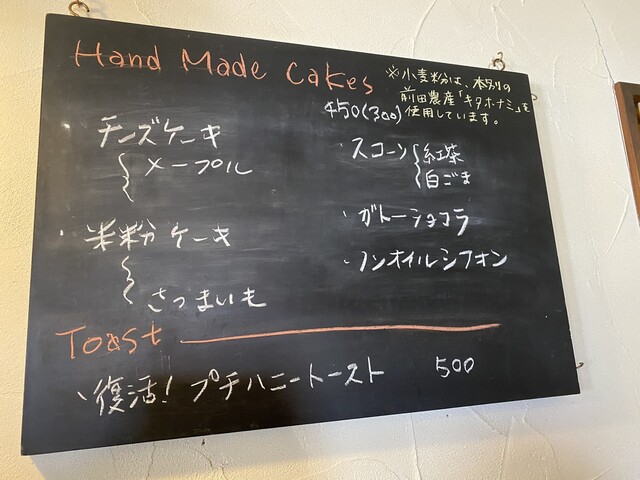 Hand Made Cakes
※小麦粉は、本別の
前田農産「キタホナミ」を
使用しています。
450(300)
チーズケーキ
メープル
・米粉ケーキ
さつまいも
・スコーン
紅茶
白ごま
・ガトーショコラ
・ノンオイルシフォン
Toast
・復活！プチハニートースト 500